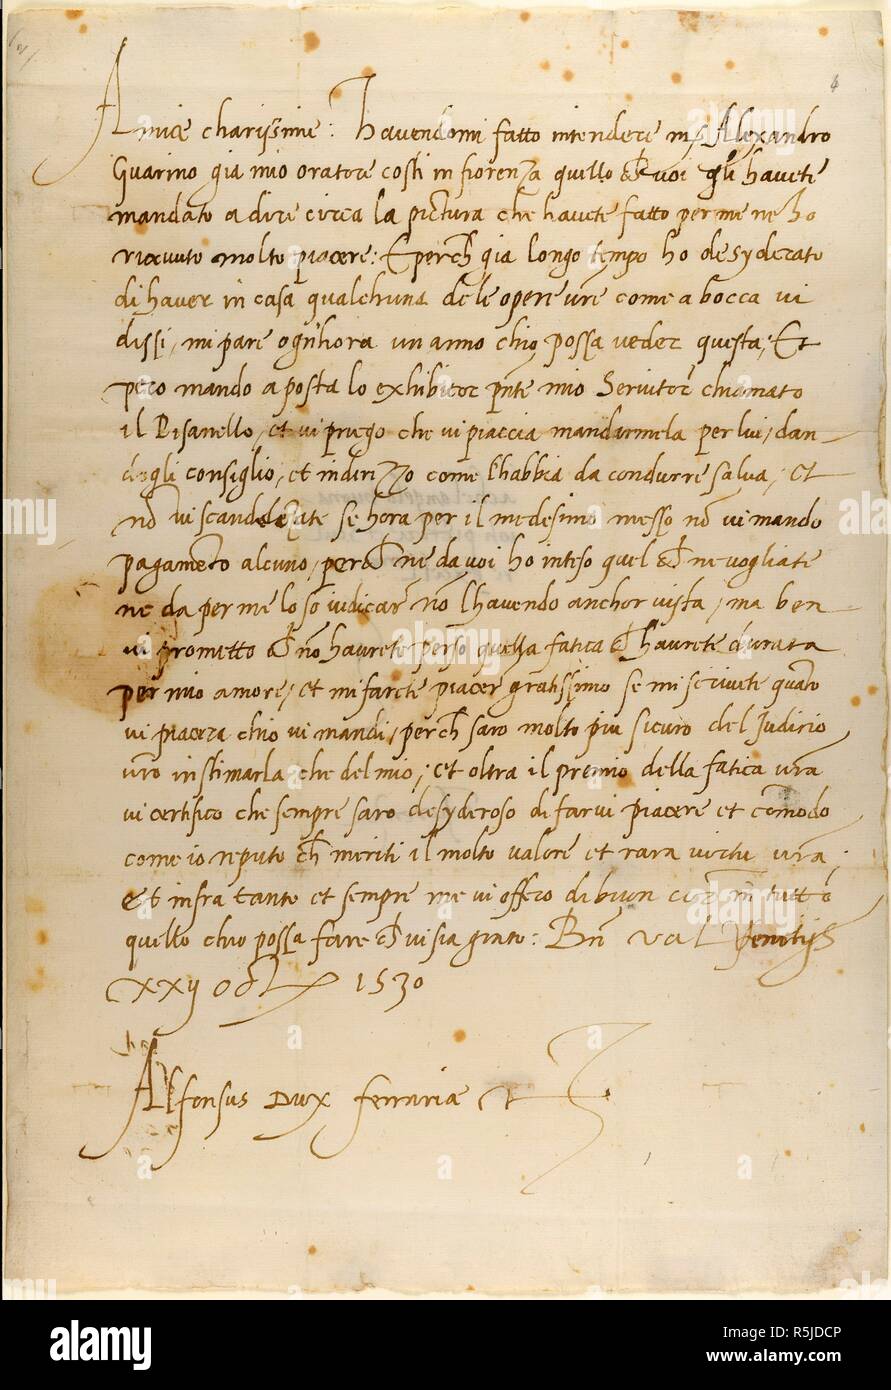 Amice charissime: havendomi fatto intendere mß Alexandro
Guarino gia mio oratore costi in fiorenza quello ch voi gli havete
mandato a dire circa la pictura che havete fatto per me ne ho
ricevuto molto piacere: E perch gia longo tempo ho desyderato
di haver in casa qualchuna dele opere vre come a bocca vi
dissi, mi pare ogn'hora un anno chio possa veder questa, Et
pero mando a posta lo exhibitor pnte mio Servitor chiamato
il Pisanello, et vi priego che vi piaccia mandarmela per lui, dan-
dogli consiglio, et indirizzo come l'habbia da condurre salva, et
nō vi scandelizate se hora per il medesimo messo nō vi mando
pagamēto alcuno, perch ne da voi ho inteso quel ch ne vogliate
ne da per me lo so iudicar nō l'havendo anchor vista, ma ben
vi prometto ch nō havrete perso quella fatica ch havrete durata
per mio amore, et mi farete piacer gratissimo se mi scrivete quāto
vi piacera chio vi mandi, perch saro molto piu sicuro del Judicio
vro in stimarla che del mio, et oltra il premio della fatica vra
vi certifico che sempre saro desyderoso di farvi piacere et cōmodo
come io reputo ch meriti il molto valore et rara virtu vra;
et in fra tanto et sempre me vi offero di buon cor in tutto
quello chio possa fare ch vi sia grato: Bn val Venetijs
xxij Octb 1530
Alfonsus Dux ferrariæ et
4
alamy
Image ID: R5JDCP
www.alamy.com